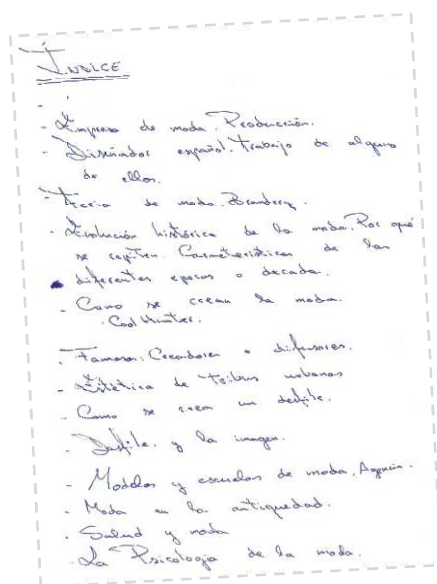 ÍNDICE
-
- Empresa de moda. Producción.
- Diseñador español. Trabajo de alguno
de ellos.
- Feria de moda. Brandery.
- Evolución histórica de la moda. Por qué
se repiten. Características de las
diferentes epocas o decada.
- Como se crean la moda.
. Cool Hunter.
- Famosos: Creadores o difusores.
- Estética de tribus urbanas
- Como se crea un desfile.
- Desfile y la imagen.
- Modelos y escuelas de moda. Agencia.
- Moda en la antiquedad.
- Salud y moda
- La Psicologia de la moda.